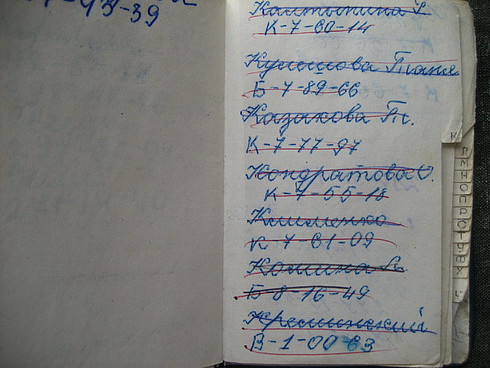 -93-39
К-7-60-14
Кулешова Таня
Б-7-89-66
Казакова Т.
К-7-77-97
Кондратова О.
К-7-55-18
Клименко
К-7-61-09
Комина
Б-8-16-49
Кречинский
В-1-00-63
К
Л
М
Н
О
П
Р
С
Т
У